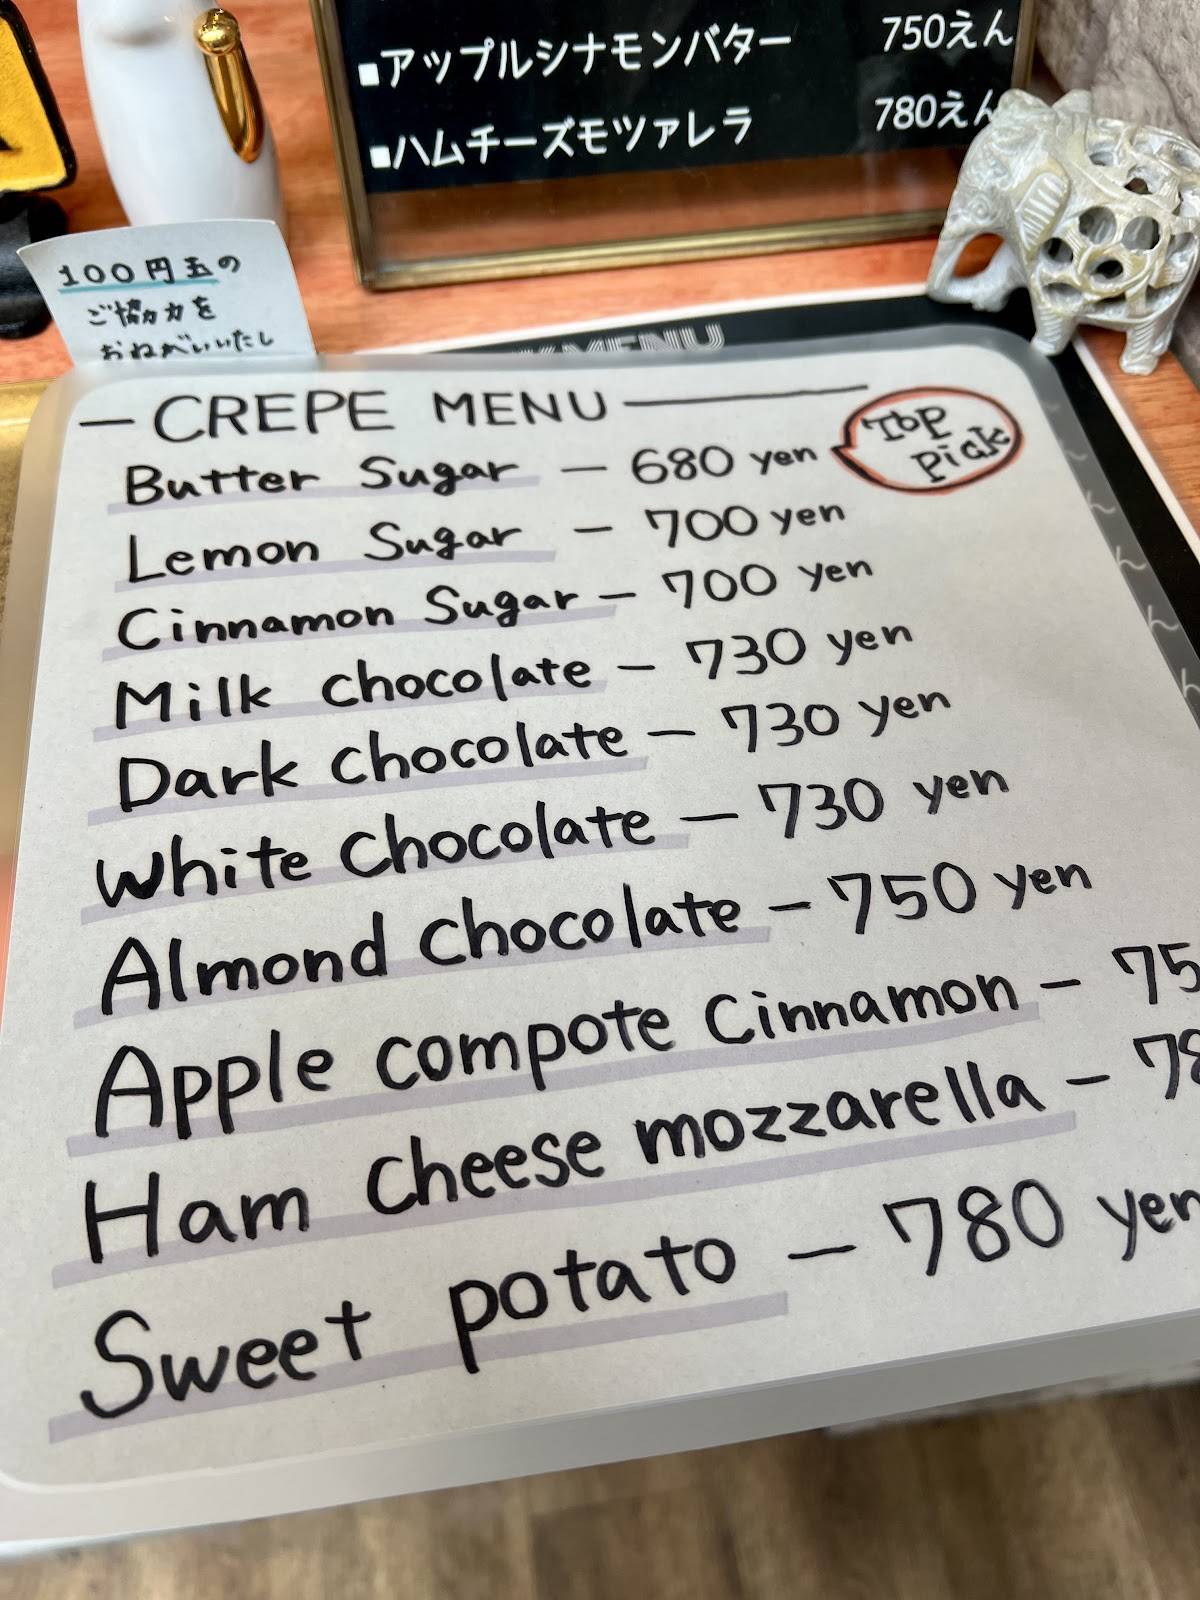 ■アップルシナモンバター 750えん
■ハムチーズモツァレラ 780えん
100円玉の
ご協力を
おねがいいたし
MENU
CREPE MENU
Top
Pick
Butter Sugar — 680 yen
Lemon Sugar — 700 yen
Cinnamon Sugar — 700 yen
Milk chocolate — 730 yen
Dark chocolate — 730 yen
White chocolate — 730 yen
Almond chocolate — 750 yen
Apple compote cinnamon — 75
Ham cheese mozzarella — 78
Sweet potato — 780 yen